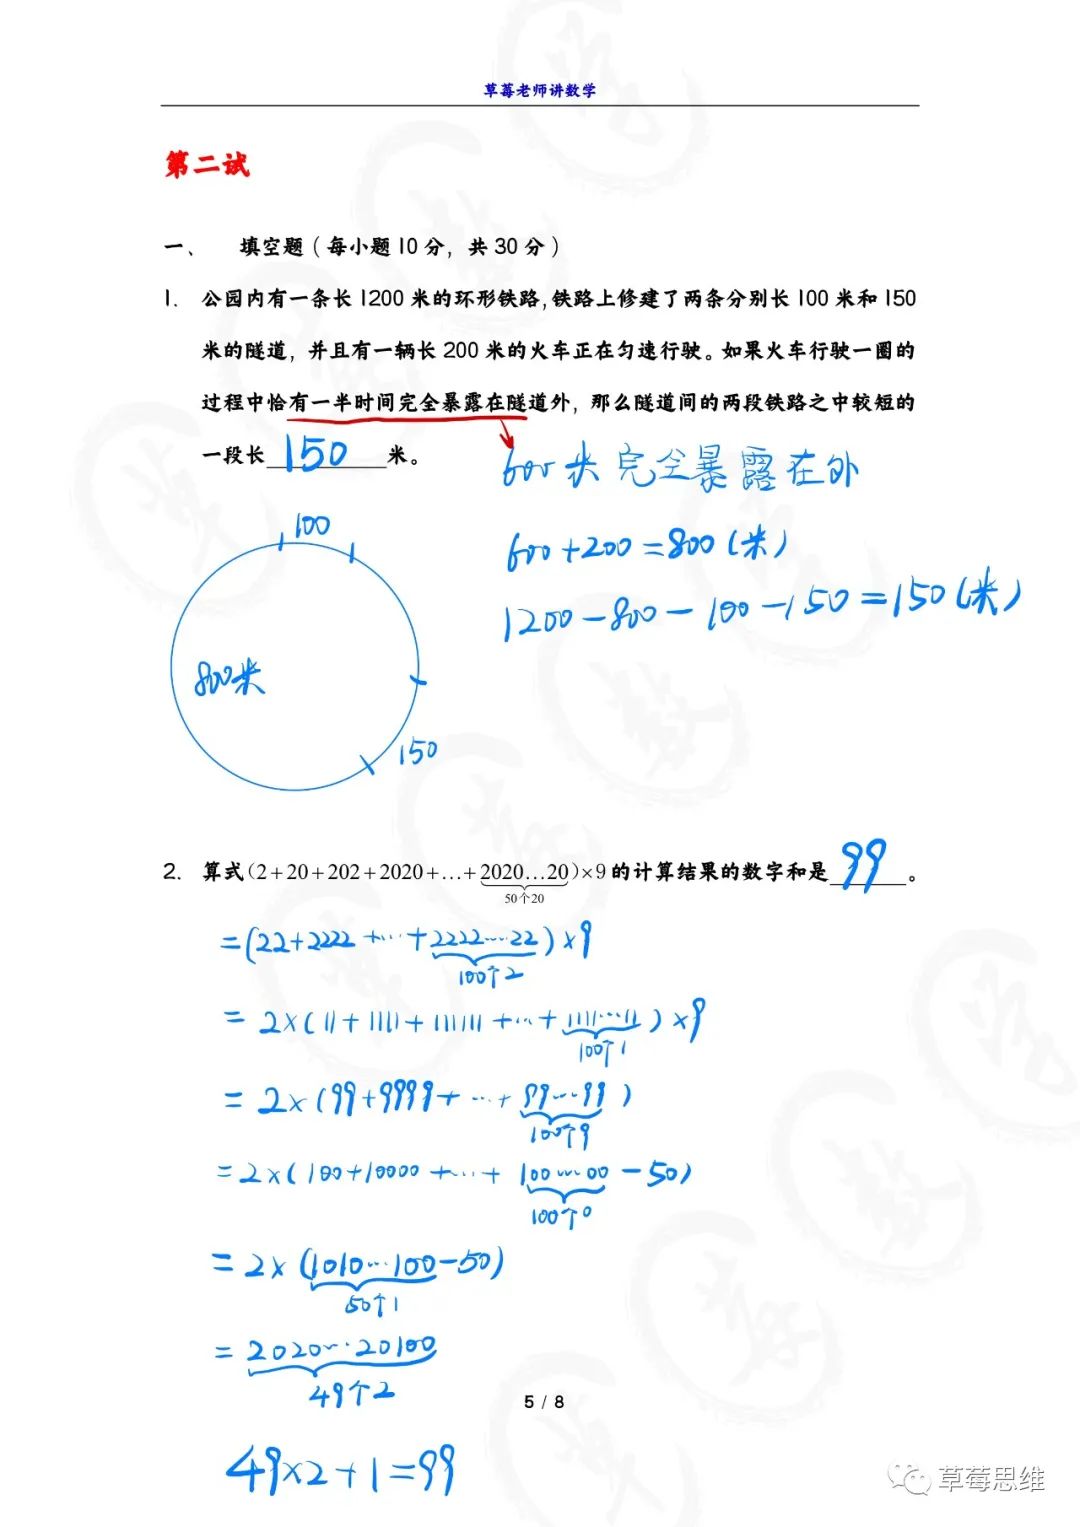 草莓老师讲数学
第二试
一、 填空题（每小题10分，共30分）
1. 公园内有一条长1200米的环形铁路，铁路上修建了两条分别长100米和150
米的隧道，并且有一辆长200米的火车正在匀速行驶。如果火车行驶一圈的
过程中恰有一半时间完全暴露在隧道外，那么隧道间的两段铁路之中较短的
一段长150米。
600米完全暴露在外
100
600+200=800(米)
1200-800-100-150=150(米)
800米
150
2. 算式(2+20+202+2020+…+2020…20)×9的计算结果的数字和是99。
50个20
=(22+2222+…+2222…22)×9
100个2
=2×(11+1111+111111+…+1111…11)×9
100个1
=2×(99+9999+…+99…99)
100个9
=2×(100+10000+…+100…00-50)
100个0
=2×(1010…100-50)
50个1
=2020…20100
49个2
5 / 8
49×2+1=99
草莓思维